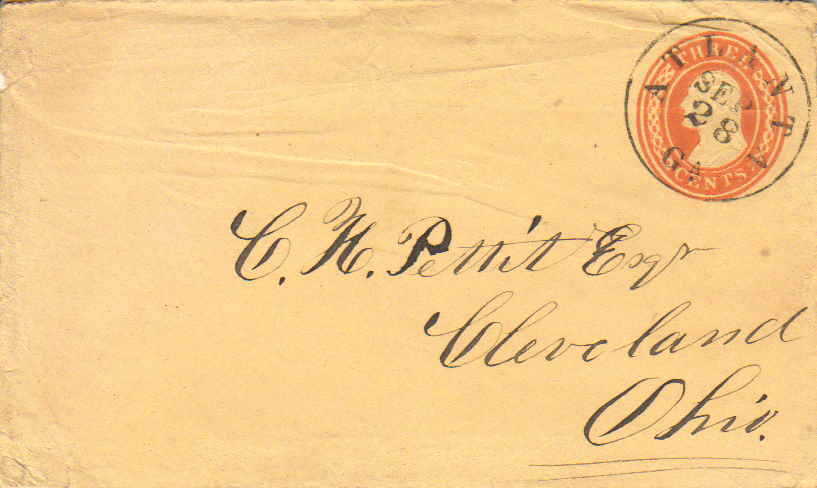 THREE
CENTS
ATLANTA
SEP
28
GA
C. H. Pettit Esqr
Cleveland
Ohio.